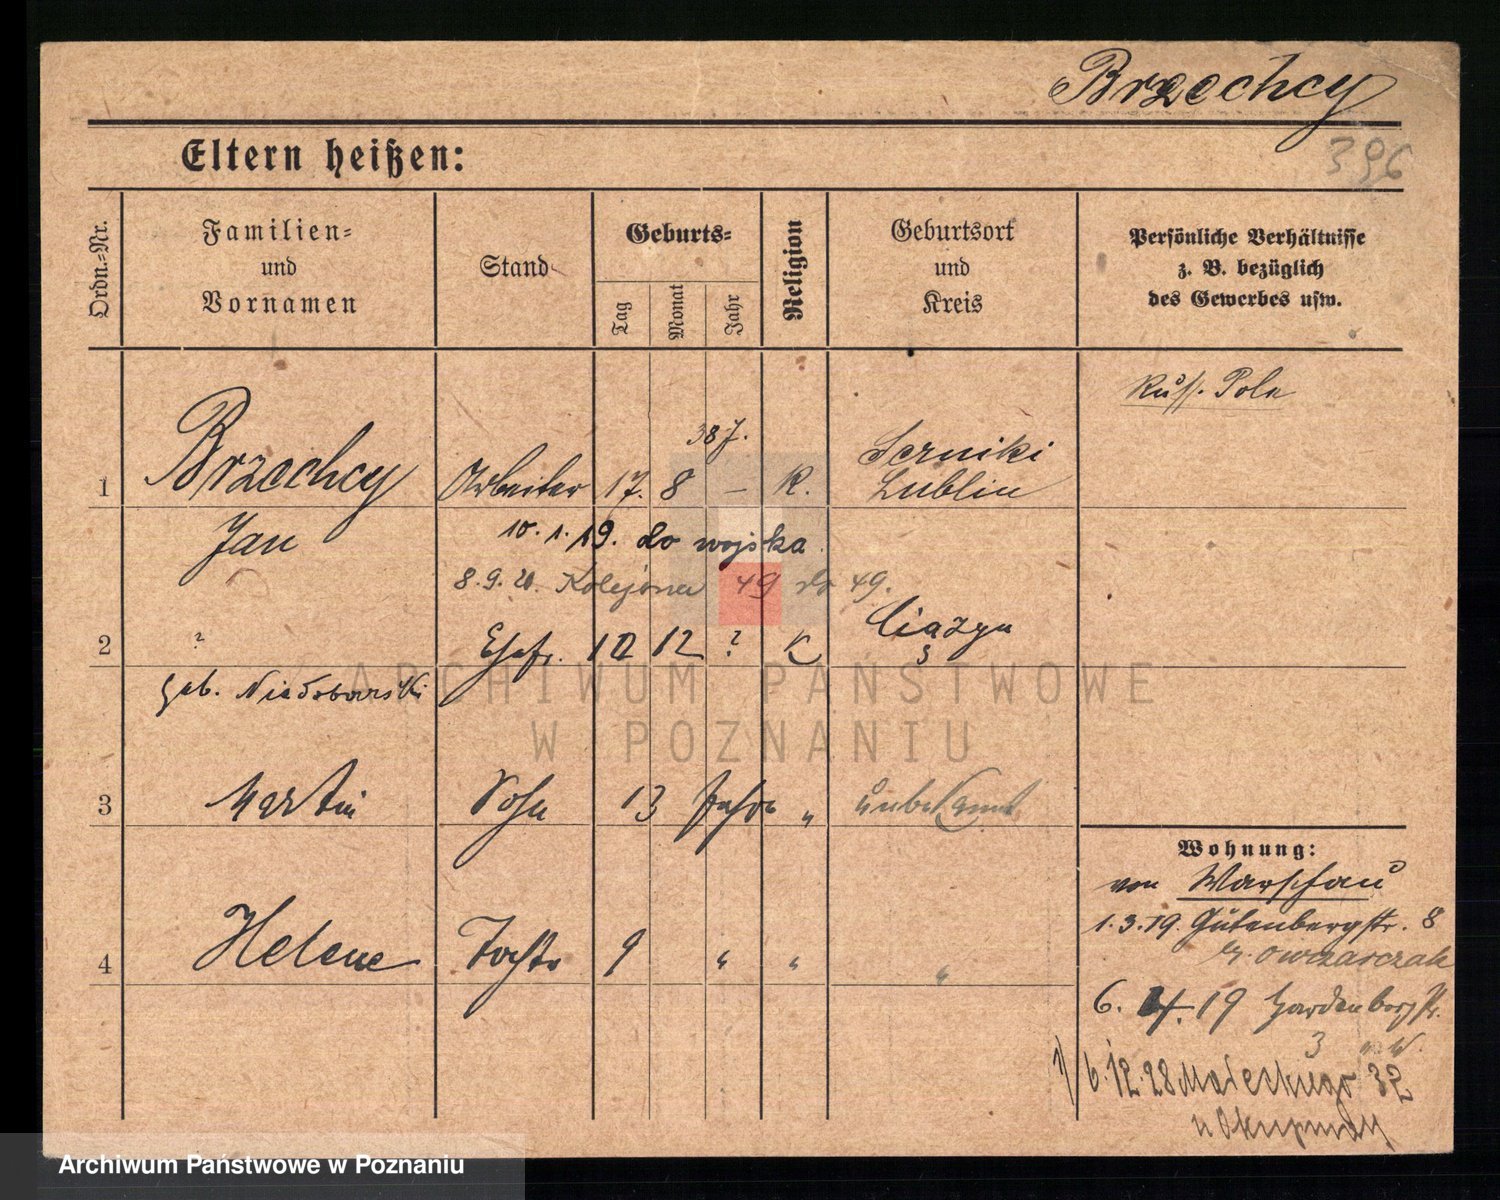 Brzechcy
396
Eltern heißen:
Ordn.-Nr.
Familien-
und
Vornamen
Stand
Geburts-
Tag
Monat
Jahr
Religion
Geburtsort
und
Kreis
Persönliche Verhältnisse
z. B. bezüglich
des Gewerbes usw.
Russ. Pole
38 J.
1 Brzechcy Arbeiter 17. 8 — K. Serniki
Lublin
Jan
10. 1. 19. do wojska
8. 9. 20. Kolejowa 49 do 49.
2 ? Ehefr. 10 12 ? K Ciążyn
geb.
3 Martin Sohn 13 Jahre " unbekannt
4 Helene Tochter 9 " " "
Wohnung:
von Warschau
1. 3. 19. Gutenbergstr. 8
Owczarczak
6. 4. 19 Hardenbergstr.
3
6. 12. 28 Małeckiego 32
ARCHIWUM PAŃSTWOWE
W POZNANIU
Archiwum Państwowe w Poznaniu